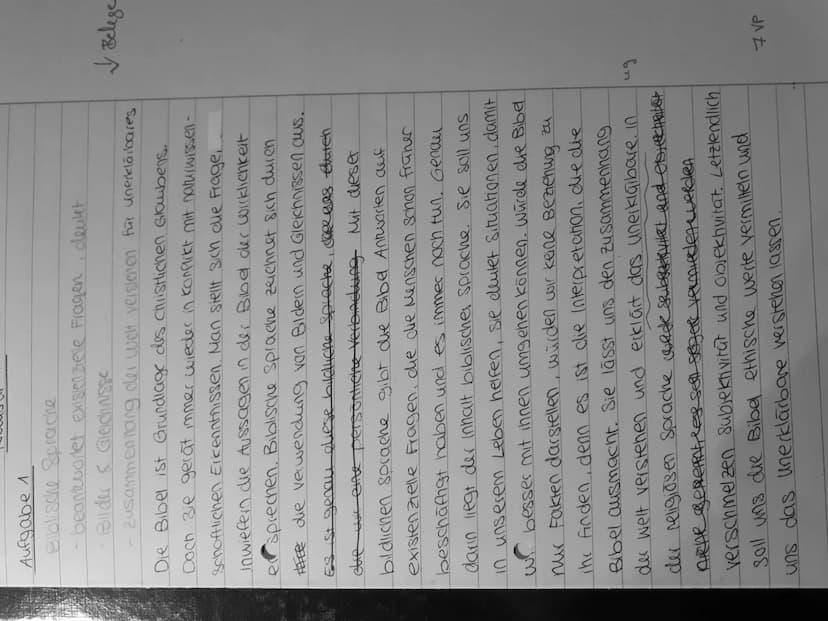 Aufgabe 1
Biblische Sprache
- beantwortet existenzielle Fragen, deutet
- Bilder & Gleichnisse
- Zusammenhang der Welt verstehen für unerklärbares
↓ Belege
Die Bibel ist Grundlage des christlichen Glaubens.
Doch sie gerät immer wieder in Konflikt mit naturwissen-
schaftlichen Erkenntnissen. Man stellt sich die Frage,
inwiefern die Aussagen in der Bibel der Wirklichkeit
entsprechen. Biblische Sprache zeichnet sich durch
die Verwendung von Bildern und Gleichnissen aus.
Es ist genau diese bildliche Sprache, durch
die wir eine persönliche Verbindung. Mit dieser
bildlichen Sprache gibt die Bibel Antworten auf
existenzielle Fragen, die die Menschen schon früher
beschäftigt haben und es immer noch tun. Genau
darin liegt der Inhalt biblischer Sprache. Sie soll uns
in unserem Leben helfen, sie deutet Situationen, damit
wir besser mit ihnen umgehen können. Würde die Bibel
nur Fakten darstellen, würden wir keine Beziehung zu
ihr finden, denn es ist die Interpretation, die die
Bibel ausmacht. Sie lässt uns den Zusammenhang
der Welt verstehen und erklärt das Unerklärbare. In ug
der religiösen Sprache
verschmelzen Subjektivität und Objektivität. Letztendlich
soll uns die Bibel ethische Werte vermitteln und
uns das unerklärbare verstehen lassen.
7 VP